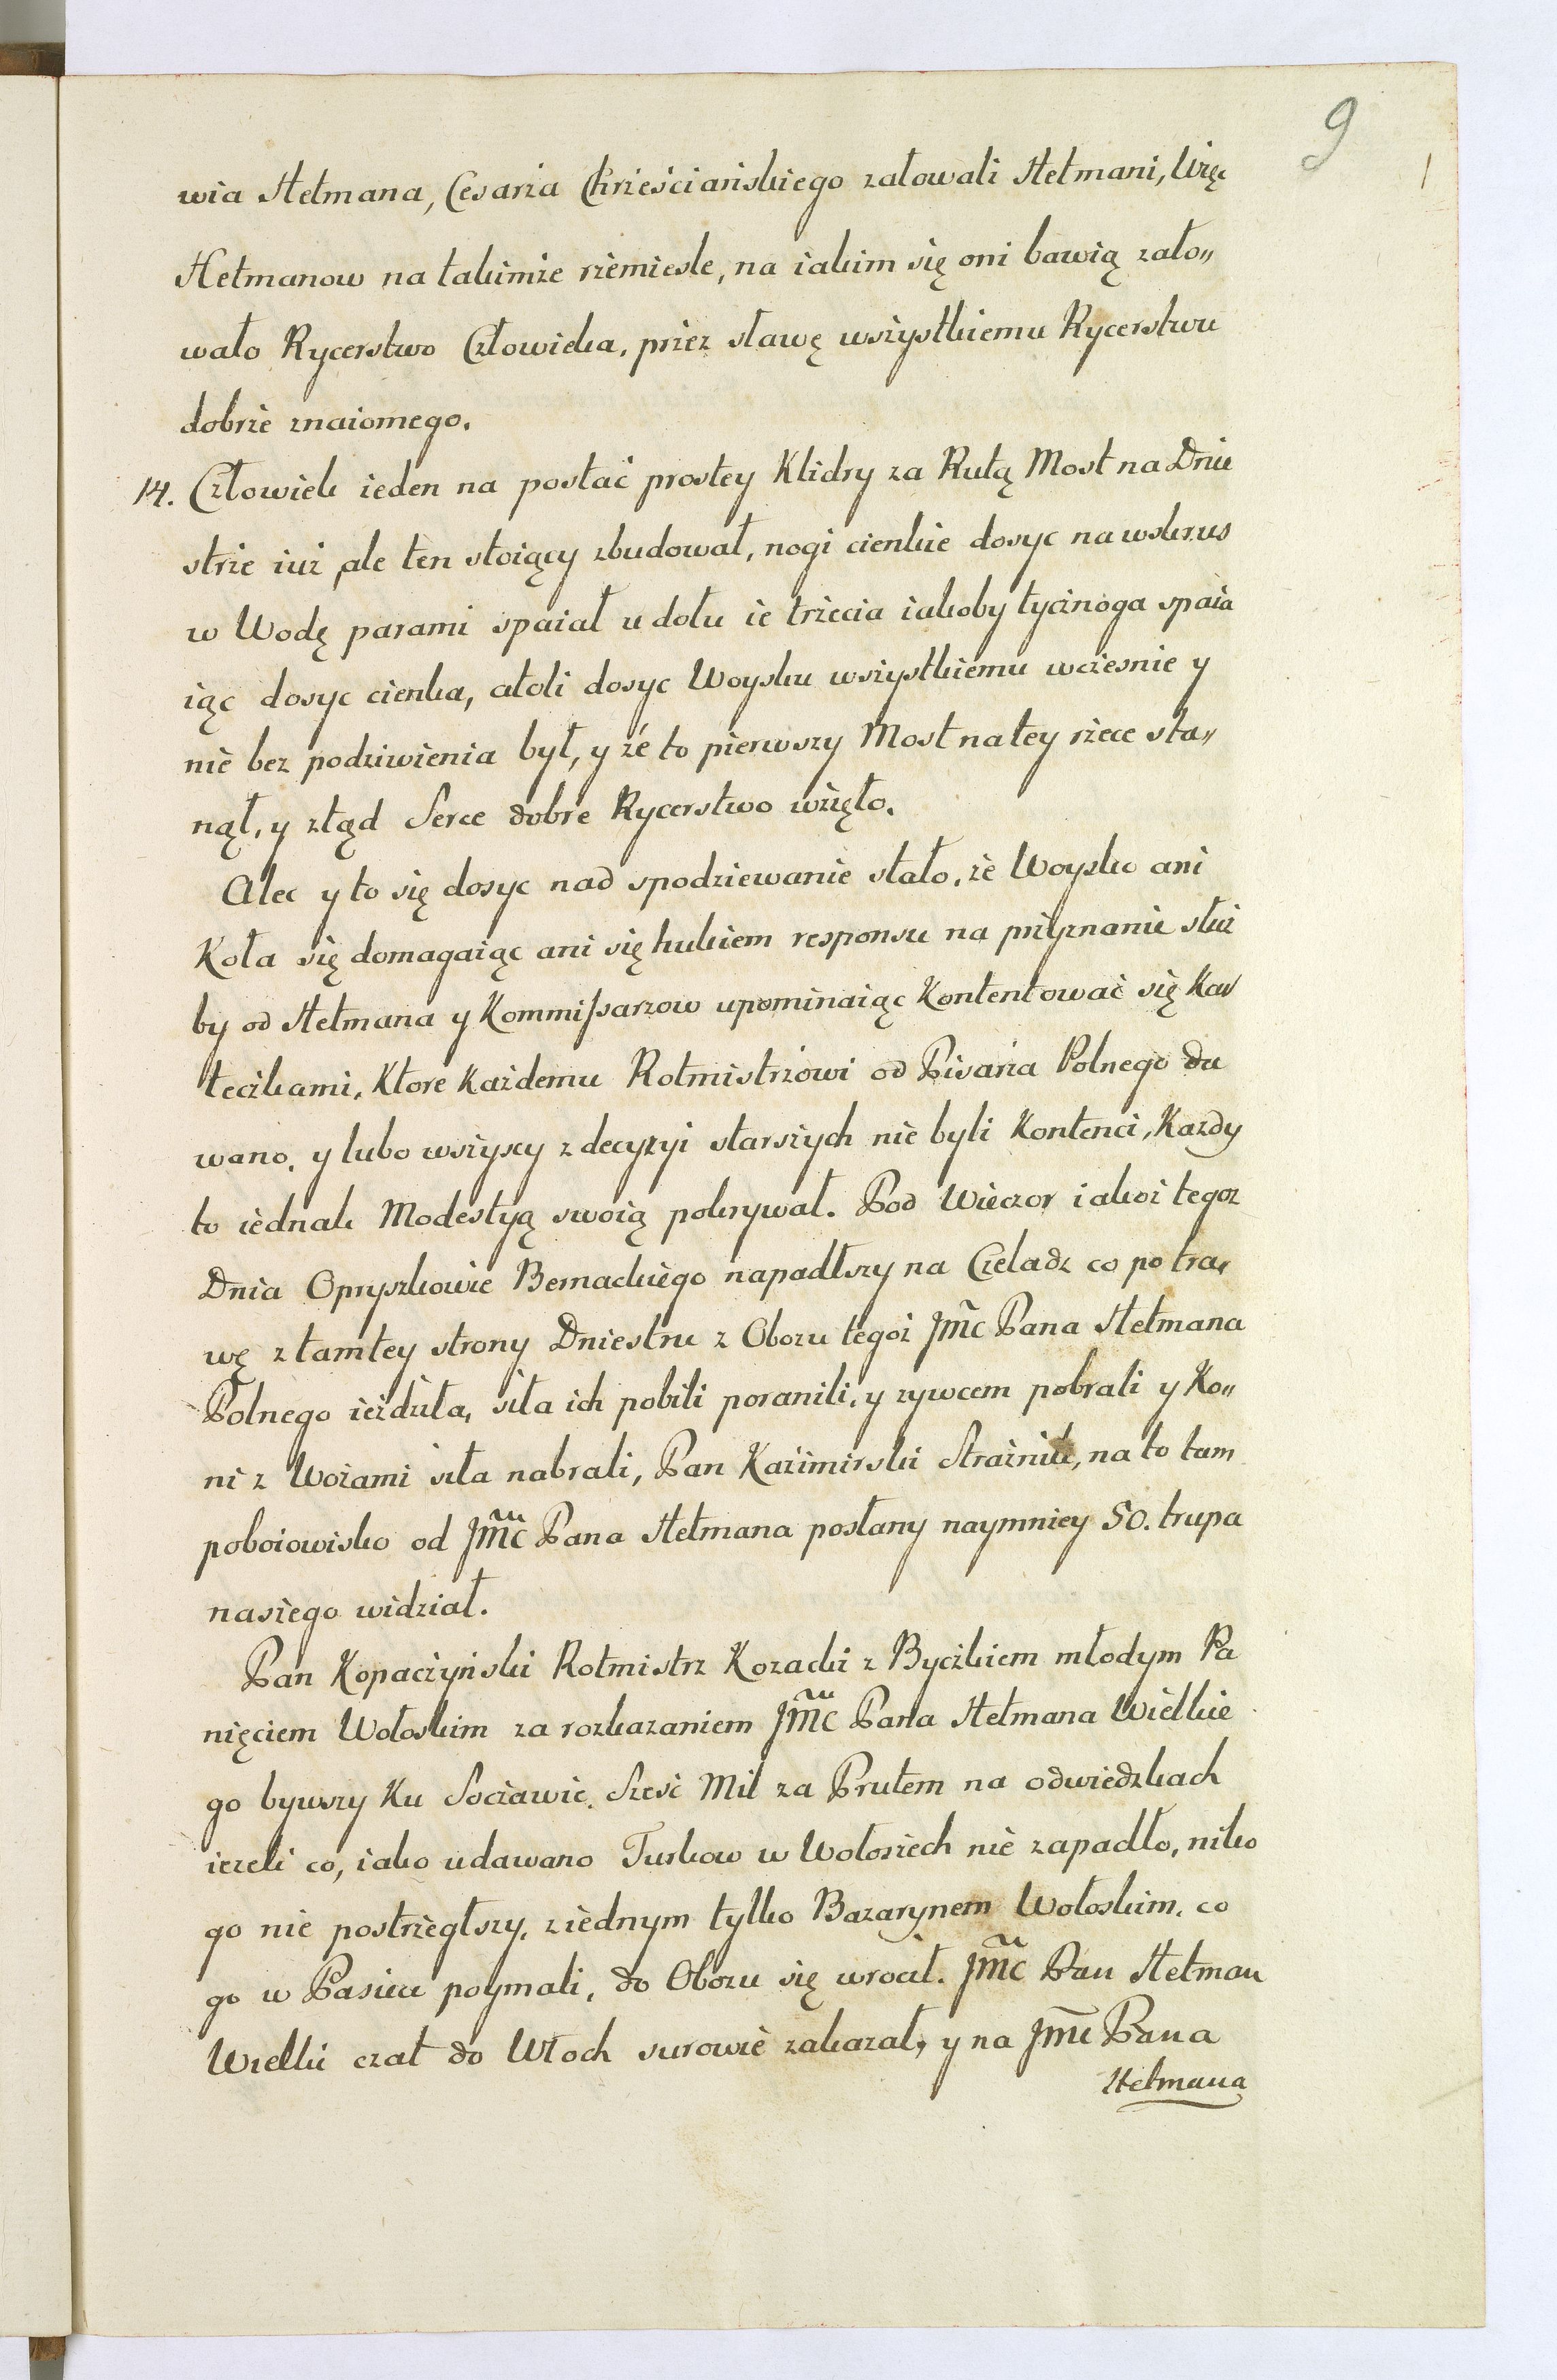 9
wia Hetmana, Cesarza Chrześciańskiego załowali Hetmani, Więc
Hetmanow na takimże rzemieśle, na iakim się oni bawią zało„
wało Rycerstwo Człowieka, przez sławę wszystkiemu Rycerstwu
dobrze znaiomego.
14. Człowiek ieden na postać prostey Klidry za Rutą Most na Dnie
strze iuż, ale ten stoiący zbudował, nogi cienkie dosyc na wskrus
w Wodę parami spaiał u dołu ie trzecia iakoby tycznoga spaia
iąc dosyc cienka, atoli dosyc Woysku wszystkiemu wcześnie y
nie bez podziwienia był, y że to pierwszy Most na tey rzece sta„
nął, y ztąd Serce dobre Rycerstwo wzięło.
Alec y to się dosyc nad spodziewanie stało, że Woysko ani
Koła się domagaiąc ani się hukiem responsu na przyznanie służ
by od Hetmana y Kommissarzow upominaiąc Kontentować się Kar
teczkami, Ktore Każdemu Rotmistrzowi od Pisarza Polnego da
wano, y lubo wszyscy z decyzyi starszych nie byli Kontenci, Kazdy
to iednak Modestyą swoią pokrywał. Pod Wieczor iakoż tegoz
Dnia Opryszkowie Bernackiego napadłszy na Czeladz co po tra„
wę z tamtey strony Dniestru z Obozu tegoż Jmc Pana Hetmana
Polnego ieździła, siła ich pobili poranili, y zywcem pobrali y Ko„
ni z Wozami siła nabrali, Pan Kazimirski Strażnik, na to tam
poboiowisko od Jmc Pana Hetmana posłany naymniey 50. trupa
naszego widział.
Pan Kopaczyński Rotmistrz Kozacki z Byczkiem młodym Pa
nięciem Wołoskim za rozkazaniem Jmc Pana Hetmana Wielkie
go bywszy Ku Soczawie, Szesć Mil za Prutem na odwiedzkach
iezeli co, iako udawano Turkow w Wołoszech nie zapadło, niko
go nie postrzegłszy, z iednym tylko Bazarynem Wołoskim, co
go w Pasiece poymali, do Obozu się wrocił. Jmc Pan Hetman
Wielki czat do Włoch surowie zakazał, y na Jmc Pana
Hetmana